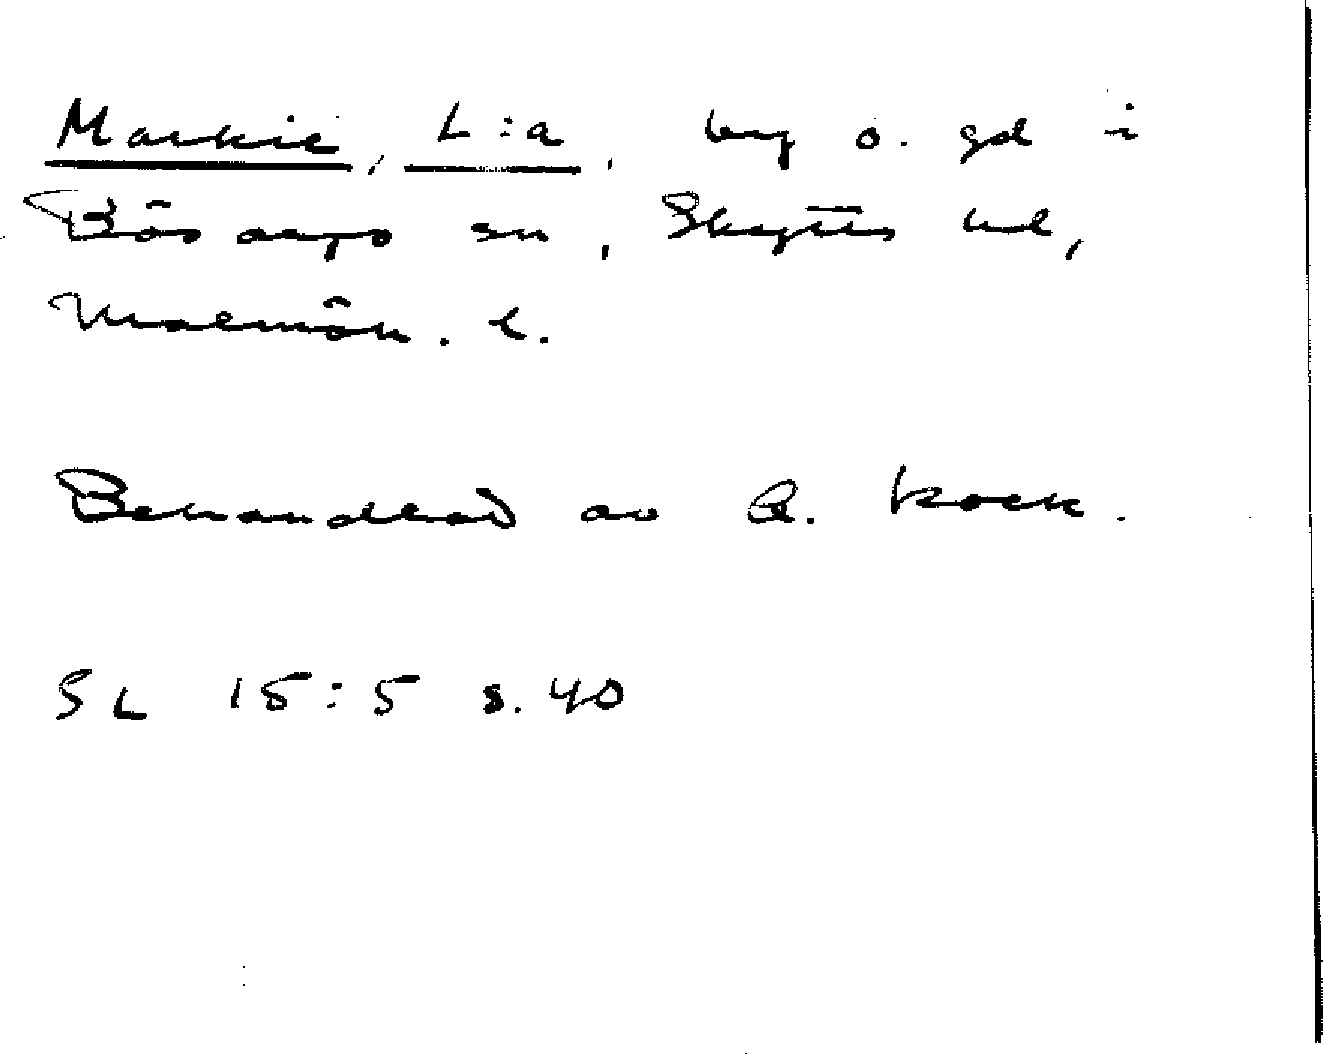 Markie, L:a, by o. gd i
Bösarps sn, Skytts hd,
Malmöh. l.
Behandlad av A. Kock.
SL 15:5 s. 40